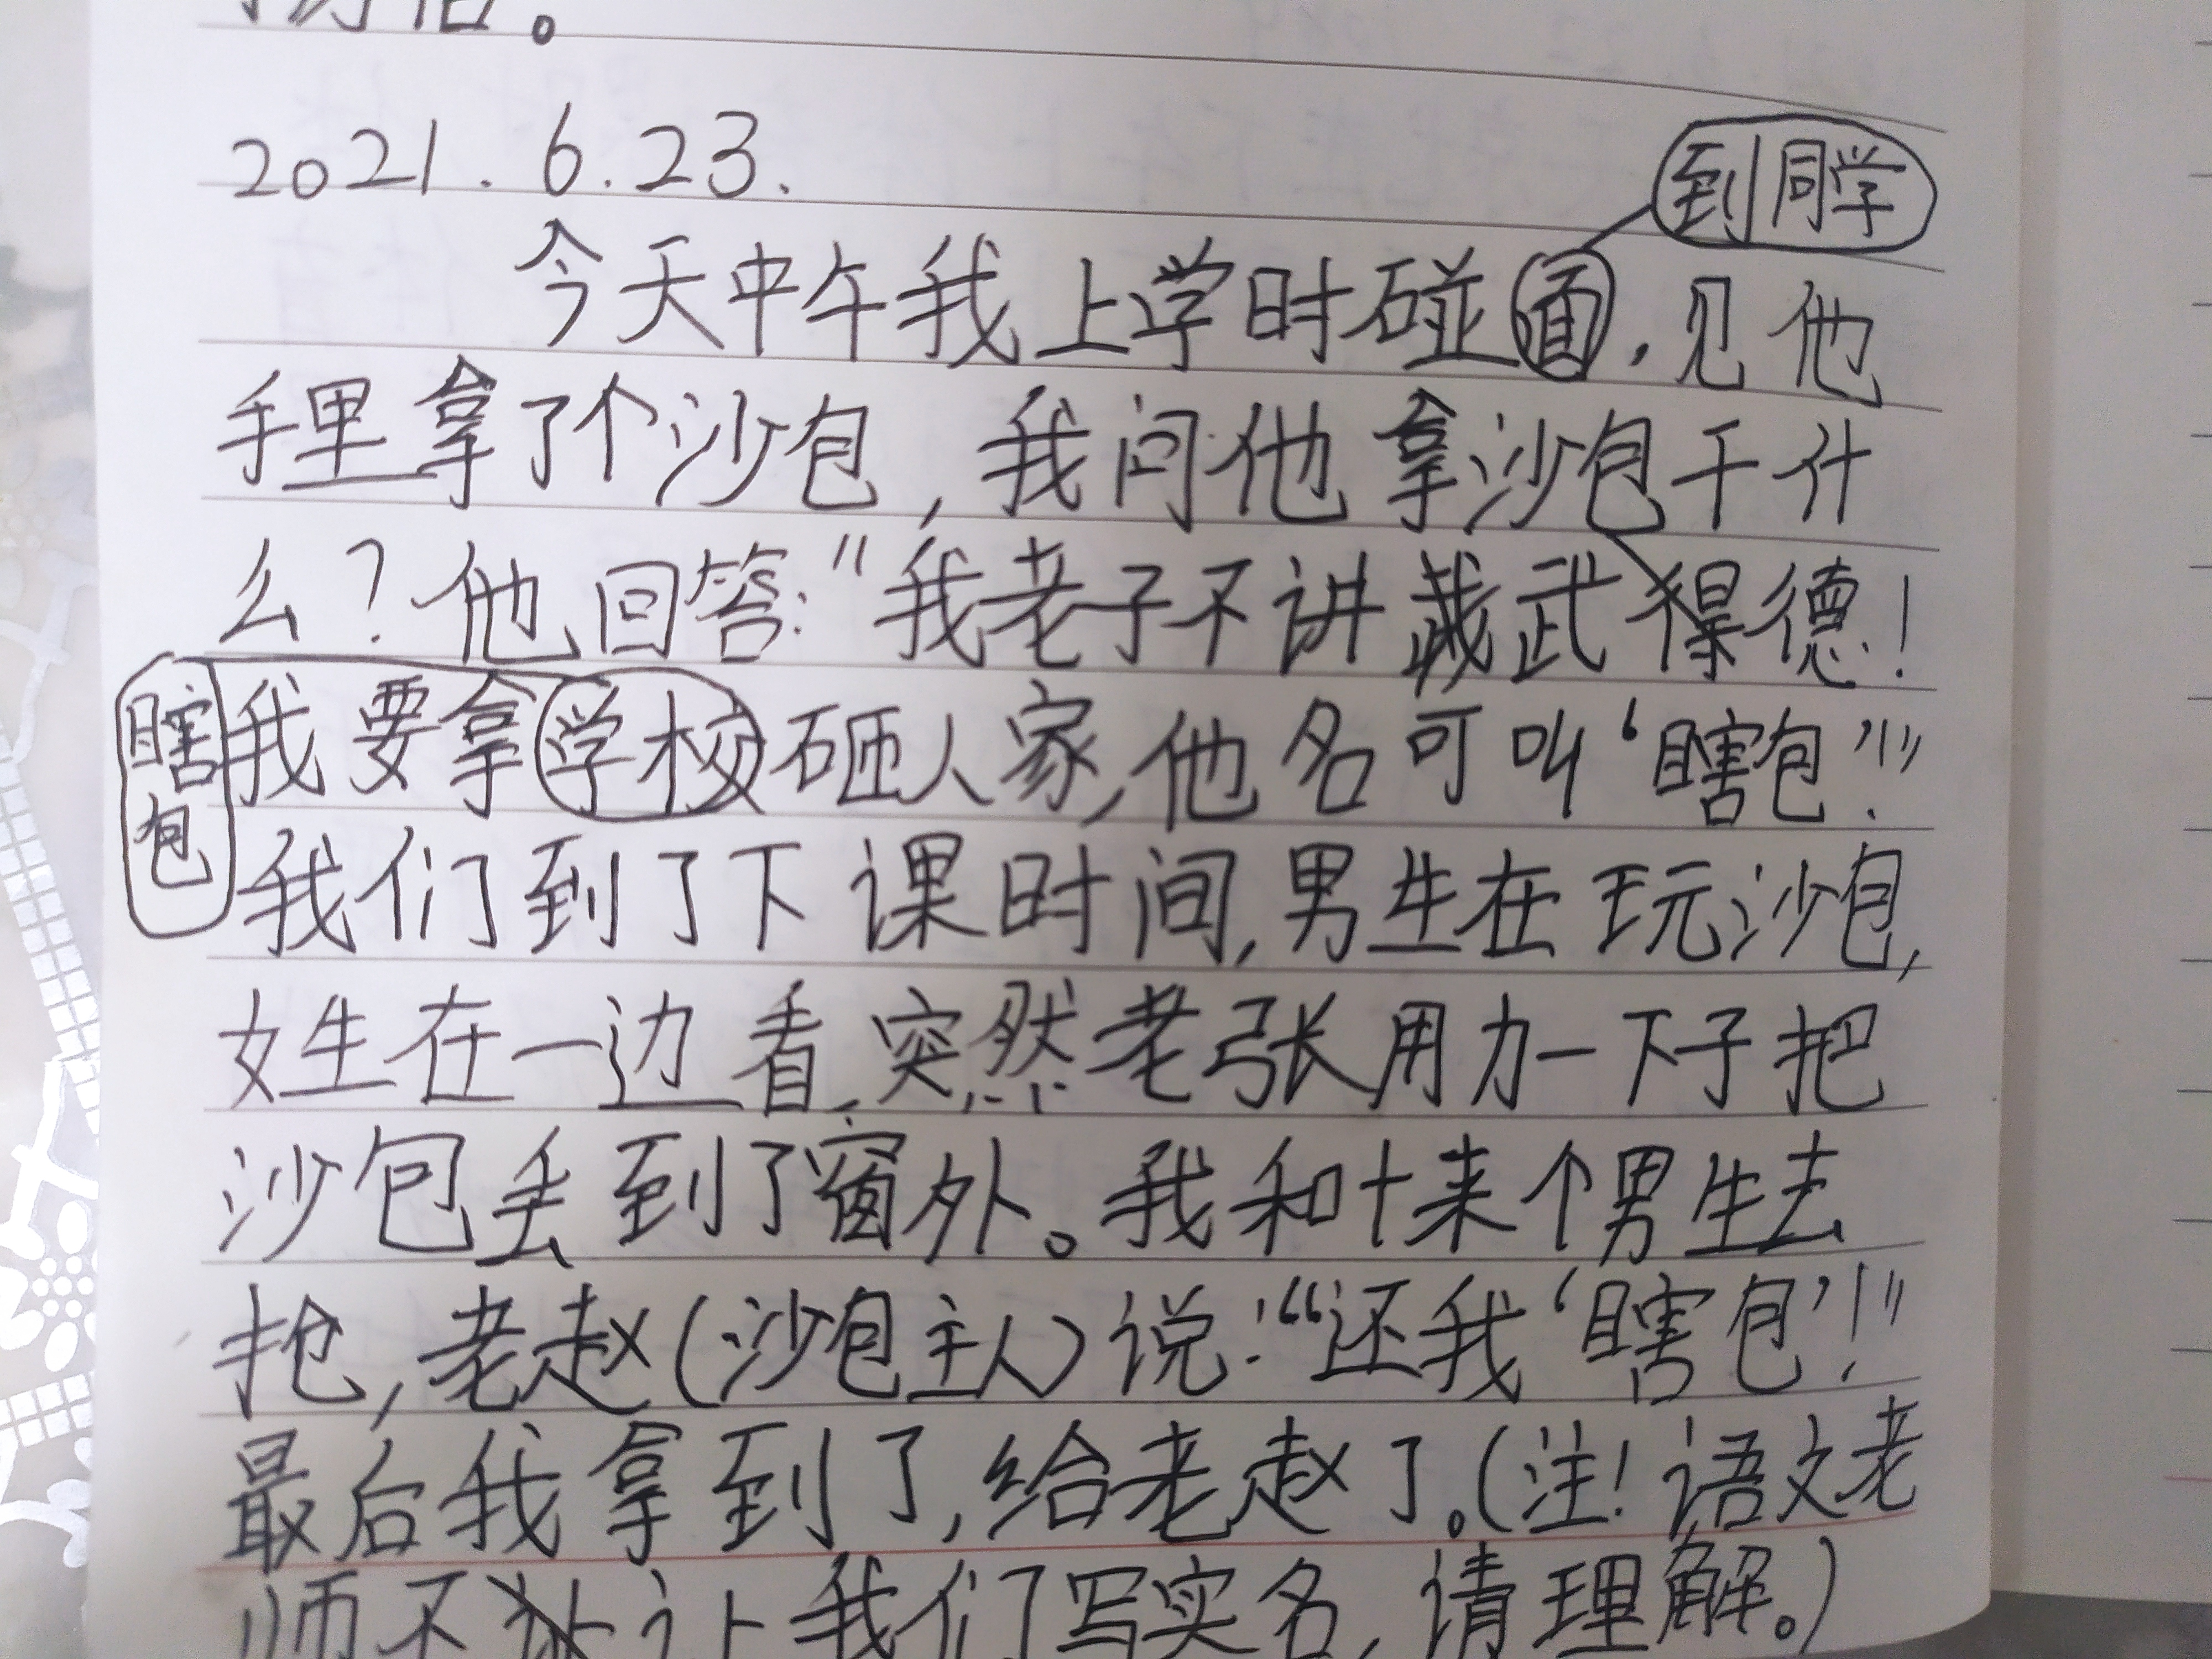 2021.6.23.
到同学
今天中午我上学时碰面,见他
手里拿了个沙包,我问他拿沙包干什
么?他回答:"我老子不讲武德!
瞎包
我要拿学校砸人家,他名可叫‘瞎包’!"
我们到了下课时间,男生在玩沙包,
女生在一边看,突然老张用力一下子把
沙包丢到了窗外。我和十来个男生去
抢,老赵(沙包主人)说:“还我‘瞎包’!”
最后我拿到了,给老赵了。(注!语文老
师不让我们写实名,请理解。)